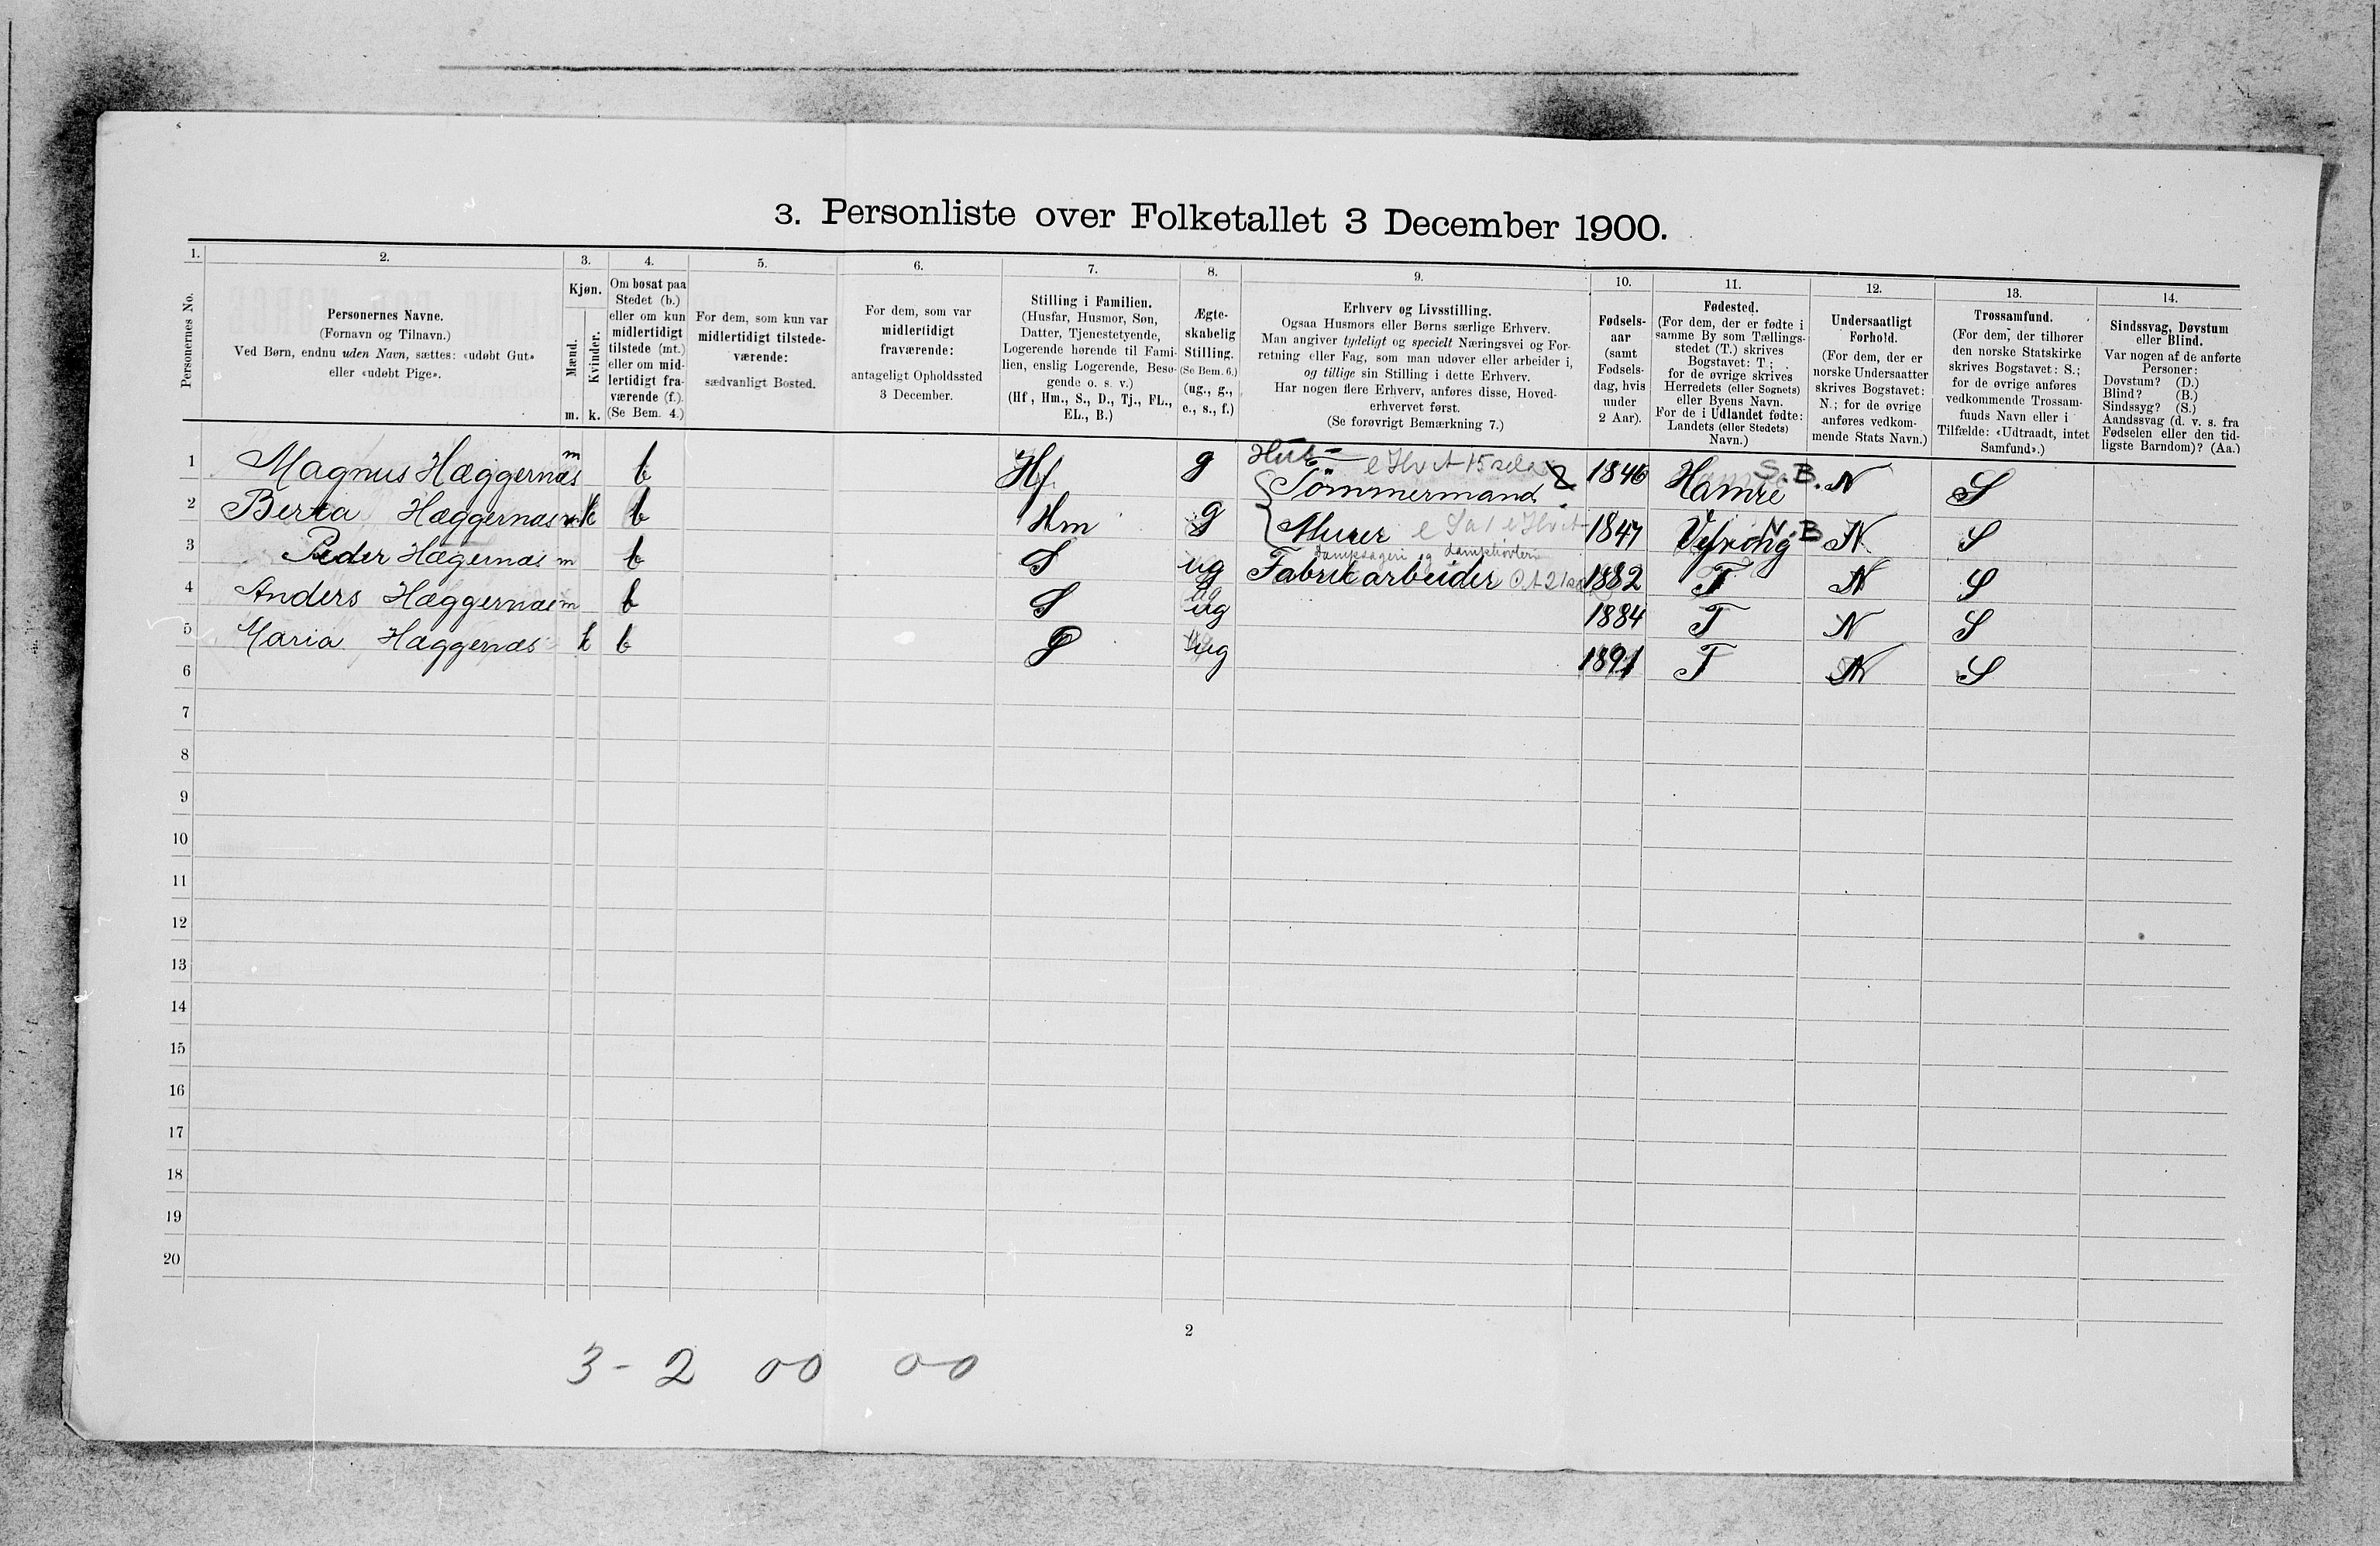 3. Personliste over Folketallet 3 December 1900.
1. 2. 3. 4. 5. 6. 7. 8. 9. 10. 11. 12. 13. 14.
Personernes No.
Personernes Navne.
(Fornavn og Tilnavn.)
Ved Børn, endnu uden Navn, sættes: «udøbt Gut»
eller «udøbt Pige».
Kjøn.
Mænd.
Kvinder.
m. k.
Om bosat paa
Stedet (b.)
eller om kun
midlertidigt
tilstede (mt.)
eller om mid-
lertidigt fra-
værende (f.).
(Se Bem. 4.)
For dem, som kun var
midlertidigt tilstede-
værende:
sædvanligt Bosted.
For dem, som var
midlertidigt
fraværende:
antageligt Opholdssted
3 December.
Stilling i Familien.
(Husfar, Husmor, Søn,
Datter, Tjenestetyende,
Logerende hørende til Fami-
lien, enslig Logerende, Besø-
gende o. s. v.)
(Hf., Hm., S., D., Tj., FL.,
EL., B.)
Ægte-
skabelig
Stilling.
(Se Bem. 6.)
(ug., g.,
e., s., f.)
Erhverv og Livsstilling.
Ogsaa Husmors eller Børns særlige Erhverv.
Man angiver tydeligt og specielt Næringsvei og For-
retning eller Fag, som man udøver eller arbeider i,
og tillige sin Stilling i dette Erhverv.
Har nogen flere Erhverv, anføres disse, Hoved-
erhvervet først.
(Se forøvrigt Bemærkning 7.)
Fødsels-
aar
(samt
Fødsels-
dag, hvis
under
2 Aar).
Fødested.
(For dem, der er fødte i
samme By som Tællings-
stedet (T.) skrives
Bogstavet: T;
for de øvrige skrives
Herredets (eller Sognets)
eller Byens Navn.
For de i Udlandet fødte:
Landets (eller Stedets)
Navn.)
Undersaatligt
Forhold.
(For dem, der er
norske Undersaatter
skrives Bogstavet:
N.; for de øvrige
anføres vedkom-
mende Stats Navn.)
Trossamfund.
(For dem, der tilhører
den norske Statskirke
skrives Bogstavet: S.;
for de øvrige anføres
vedkommende Trossam-
funds Navn eller i
Tilfælde: «Udtraadt, intet
Samfund».)
Sindssvag, Døvstum
eller Blind.
Var nogen af de anførte
Personer:
Døvstum? (D.)
Blind? (B.)
Sindssyg? (S.)
Aandssvag (d. v. s. fra
Fødselen eller den tid-
ligste Barndom)? (Aa.)
1 Magnus Hæggernæs m b Hf. g Hus- Tømmermand & 1846 Hamre S.B. N S
2 Berta Hæggernæs k b Hm g Murer 1847 N.B N S
3 Peder Hægernæs m b S ug dampsageri og damphøvleri
Fabrikarbeider 1882 T N S
4 Anders Hæggernæs m b S ug 1884 T N S
5 Maria Hæggernæs k b ug 1891 T N S
6
7
8
9
10
11
12
13
14
15
16
17
18
19
20
2
3 - 2 00 00